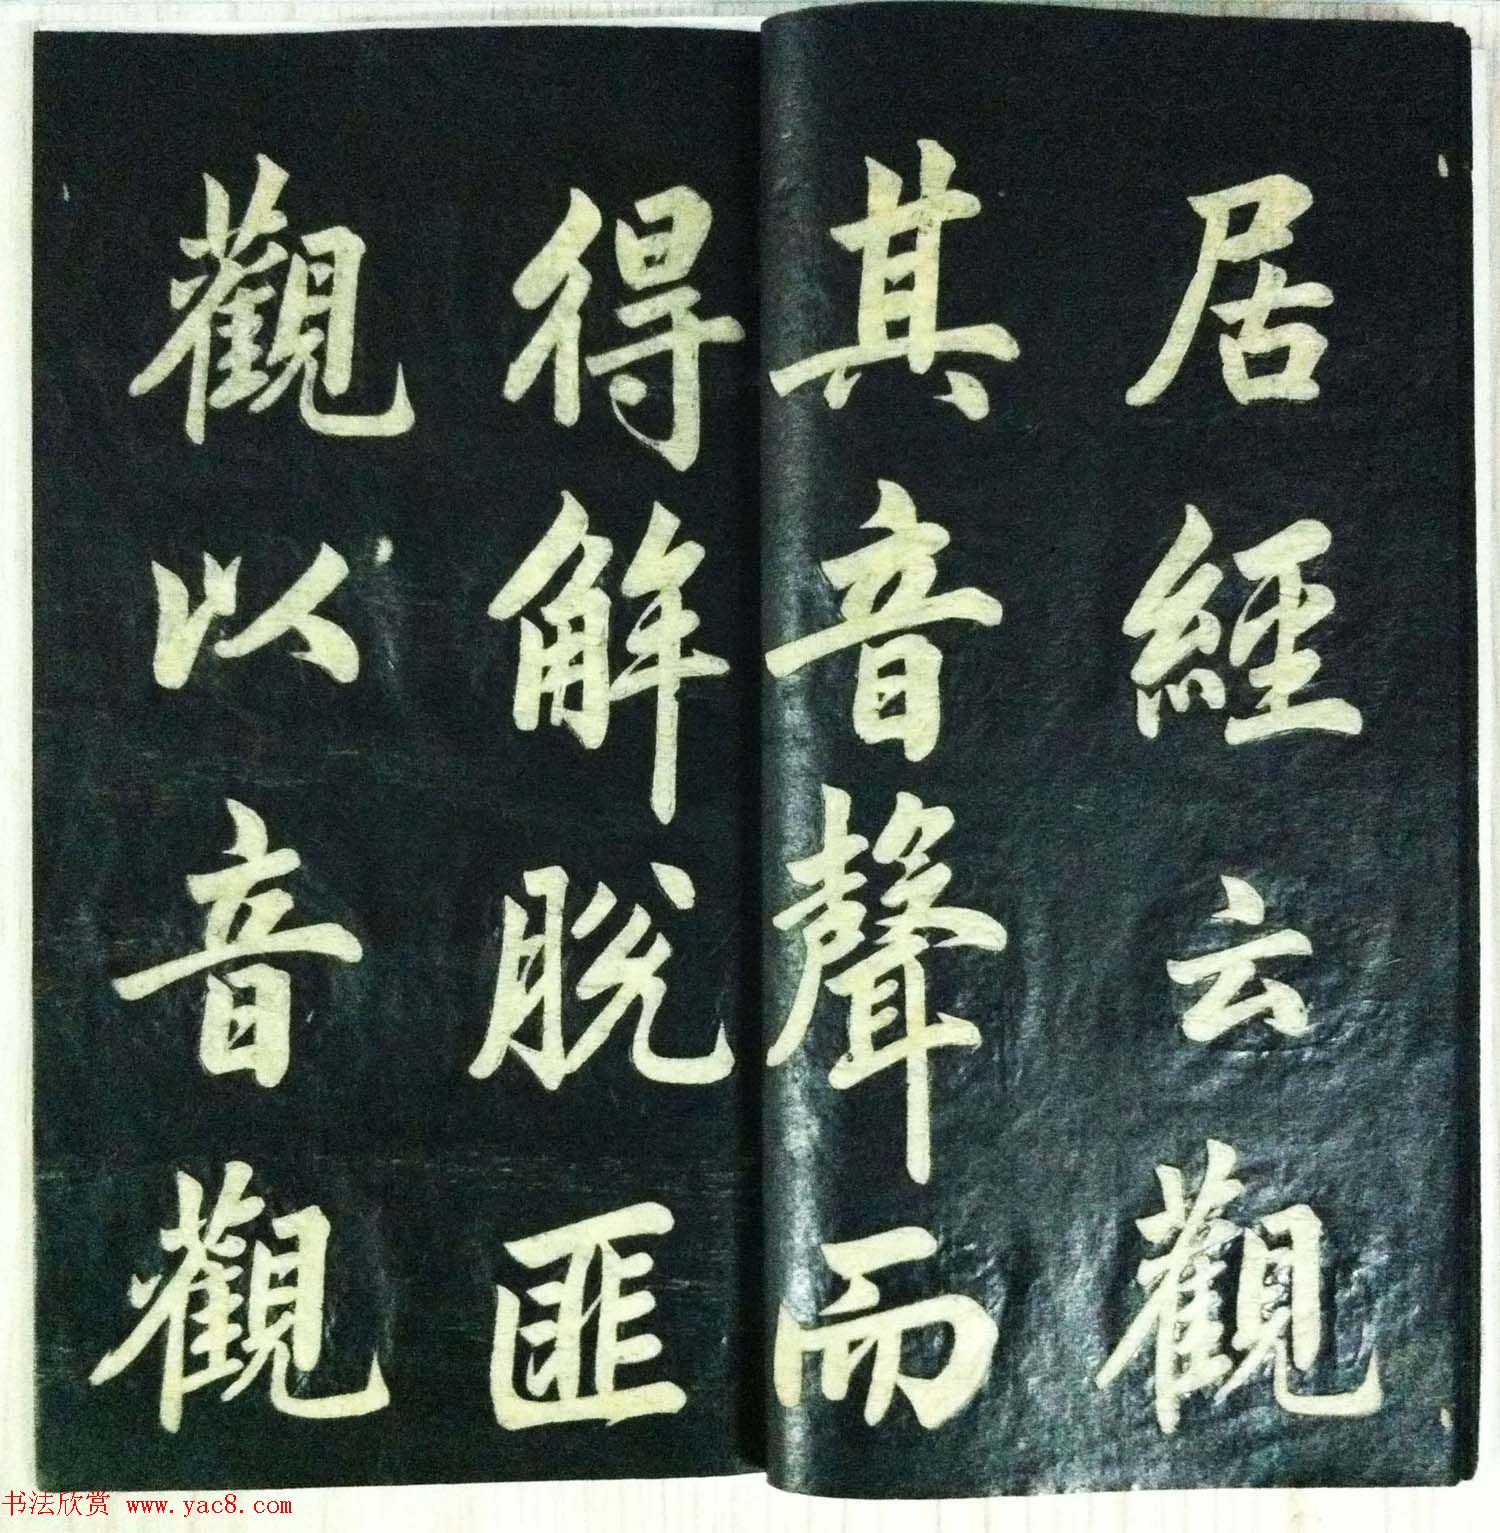 居經云觀
其音聲而
得解脫匪
觀以音觀
书法欣赏 www.yac8.com